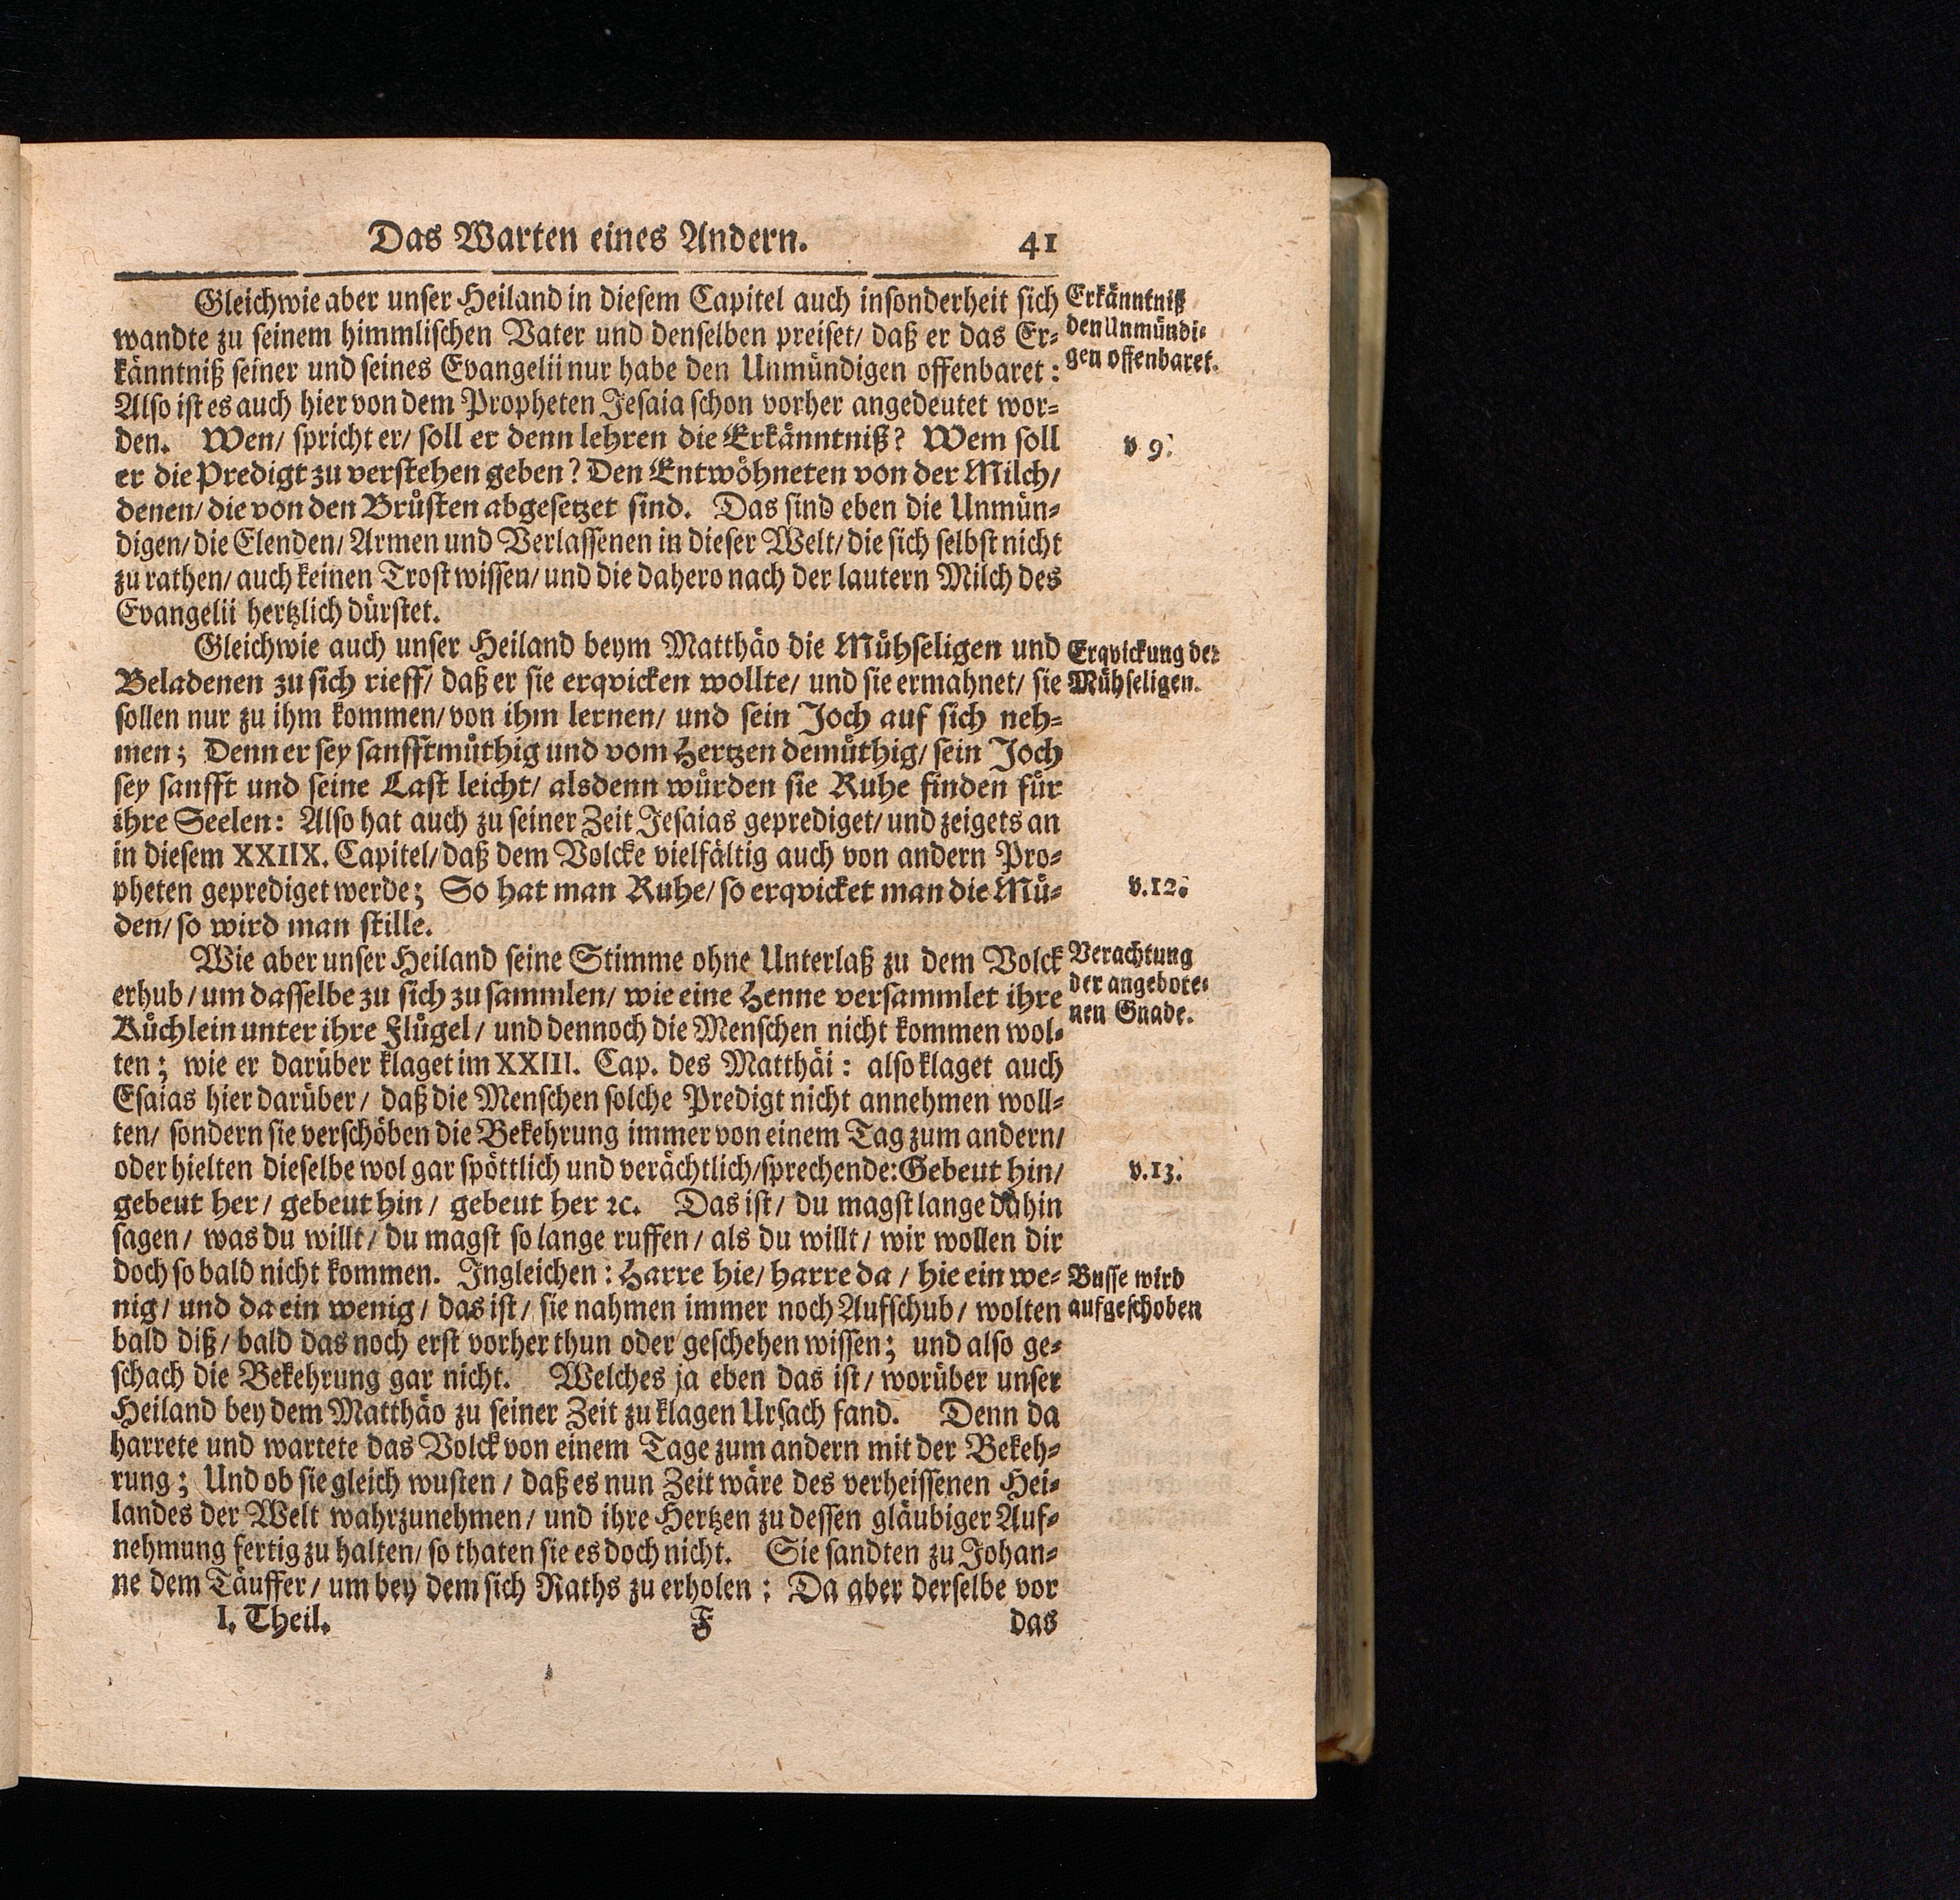 Das Warten eines Andern. 41
Gleichwie aber unser Heiland in diesem Capitel auch insonderheit sich
wandte zu seinem himmlischen Vater und denselben preiset/ daß er das Er-
känntniß seiner und seines Evangelii nur habe den Unmündigen offenbaret:
Also ist es auch hier von dem Propheten Jesaia schon vorher angedeutet wor-
den. Wen/ spricht er/ soll er denn lehren die Erkänntniß? Wem soll
er die Predigt zu verstehen geben? Den Entwöhneten von der Milch/
denen/ die von den Brüsten abgesetzet sind. Das sind eben die Unmün-
digen/ die Elenden/ Armen und Verlassenen in dieser Welt/ die sich selbst nicht
zu rathen/ auch keinen Trost wissen/ und die dahero nach der lautern Milch des
Evangelii hertzlich dürstet.
Erkänntniß
den Unmündi-
gen offenbaret.
v 9.
Gleichwie auch unser Heiland beym Matthäo die Mühseligen und
Beladenen zu sich rieff/ daß er sie erqvicken wollte/ und sie ermahnet/ sie
sollen nur zu ihm kommen/ von ihm lernen/ und sein Joch auf sich neh-
men; Denn er sey sanfftmüthig und vom Hertzen demüthig/ sein Joch
sey sanfft und seine Last leicht/ alsdenn würden sie Ruhe finden für
ihre Seelen: Also hat auch zu seiner Zeit Jesaias geprediget/ und zeigets an
in diesem XXIIX. Capitel/ daß dem Volcke vielfältig auch von andern Pro-
pheten geprediget werde; So hat man Ruhe/ so erqvicket man die Mü-
den/ so wird man stille.
Erqvickung der
Mühseligen.
v.12.
Wie aber unser Heiland seine Stimme ohne Unterlaß zu dem Volck
erhub/ um dasselbe zu sich zu sammlen/ wie eine Henne versammlet ihre
Küchlein unter ihre Flügel/ und dennoch die Menschen nicht kommen wol-
ten; wie er darüber klaget im XXIII. Cap. des Matthäi: also klaget auch
Esaias hier darüber/ daß die Menschen solche Predigt nicht annehmen woll-
ten/ sondern sie verschöben die Bekehrung immer von einem Tag zum andern/
oder hielten dieselbe wol gar spöttlich und verächtlich/ sprechende: Gebeut hin/
gebeut her/ gebeut hin/ gebeut her ꝛc. Das ist/ du magst lange dahin
sagen/ was du willt/ du magst so lange ruffen/ als du willt/ wir wollen dir
doch so bald nicht kommen. Ingleichen: Harre hie/ harre da/ hie ein we-
nig/ und da ein wenig/ das ist/ sie nahmen immer noch Aufschub/ wolten
bald diß/ bald das noch erst vorher thun oder geschehen wissen; und also ge-
schach die Bekehrung gar nicht. Welches ja eben das ist/ worüber unser
Heiland bey dem Matthäo zu seiner Zeit zu klagen Ursach fand. Denn da
harrete und wartete das Volck von einem Tage zum andern mit der Bekeh-
rung; Und ob sie gleich wusten/ daß es nun Zeit wäre des verheissenen Hei-
landes der Welt wahrzunehmen/ und ihre Hertzen zu dessen gläubiger Auf-
nehmung fertig zu halten/ so thaten sie es doch nicht. Sie sandten zu Johan-
ne dem Täuffer/ um bey dem sich Raths zu erholen: Da aber derselbe vor
Verachtung
der angebote-
nen Gnade.
v.13.
Busse wird
aufgeschoben
I. Theil. F das